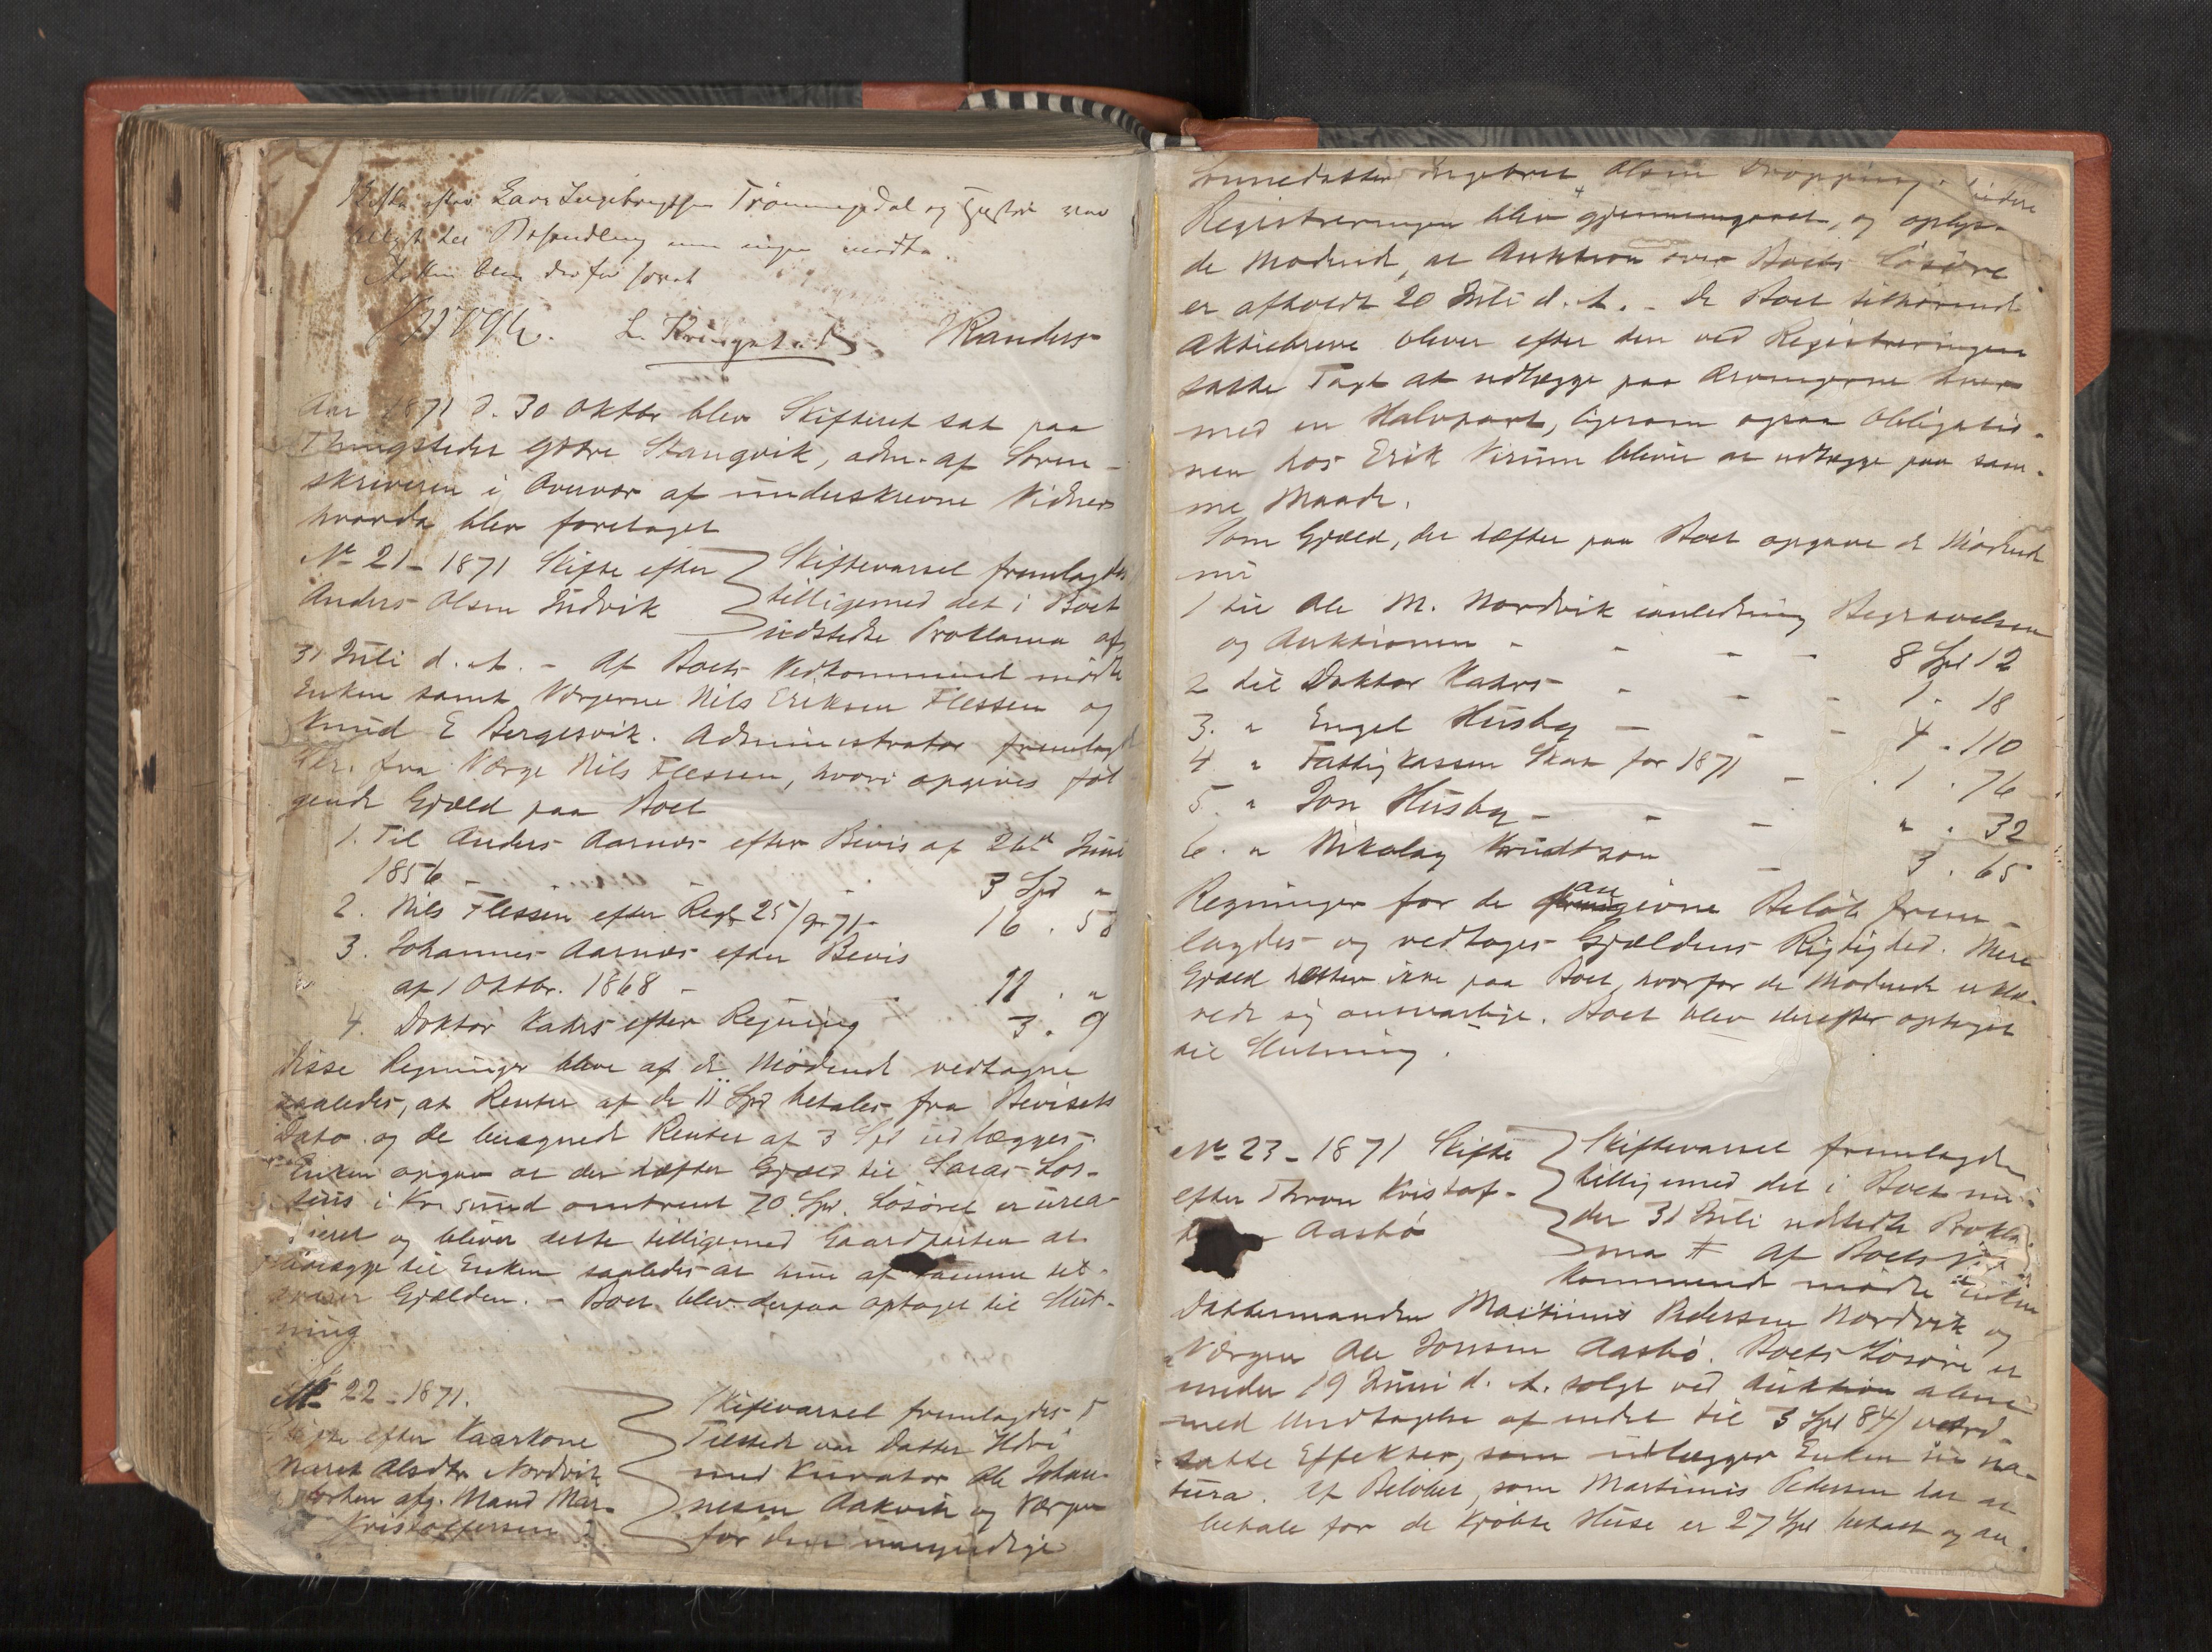 Skifte efter Lars Ingebrigtsen Trönningsdal og Hustru var
til Behandling men ingen mødte.
blev derfor
L. Kringstad. Randers
Aar 1871 d. 30 Oktbr blev Skifteret sat paa
Thingstedet Götre Stangvik, adm. af Soren-
skriveren i Overvær af underskrevne Vidner
hvorda blev foretaget
No 21 - 1871 Skifte efter
Anders Olsen Indvik
Skiftevarsel fremlagdes
tilligemed det i Boet
udstedte Proklama af
31 Juli d. A. - Af Boets Vedkommende mødte
Enken samt Værgerne Nils Eriksen Flessen og
Knud E Bergesvik. Administrator fremlagde
Skr. fra Værge Nils Flessen, hvori opgives föl
gende Gjæld paa Boet
1. Til Anders Aarnæs efter Bevis af 26de Juni
1856 - 3 Spd "
2. Nils Flessen efter Regn 25/9-71 - 16 . 58
3. Johannes Aarnæs efter Bevis
af 1 Oktbr. 1868 - 11 . "
4. Doktor Kahrs efter Regning 3 . 9
Disse Regninger bleve af de Mødende vedtagne
saaledes, at Renter af de 11 Spd betales fra Bevisets
Dato og de beregnede Renter af 3 Spd udlægges.
Enken opgav at der hæfter Gjæld til
i Kr.sund omtrent 70 Spd. Løsöret er urea-
liseret og bliver dette tilligemed Gaardparten at
udlægge til Enken saaledes at hun af samme til-
svarer Gjælden. - Boet blev derpaa optaget til Slut-
ning
No 22 - 1871.
Skifte efter Kaarkone
Maret Olsdtr Nordvik
afg. Mand Mar-
Kristoffersen
Skiftevarsel fremlagdes
Tilstede var Datter
med Kurator Ole Johan-
nesen Aakvik og Værgen
for den umyndige
Sönnedatter Ingebret Olsen Dröpping.
Registreringen blev gjennemgaaet, og oplys-
de Mødende, at Auktion over Boets Løsöre
er afholdt 20 Juli d. A. - De Boet tilhørende
Aktiebreve bliver efter den ved Registreringen
satte Taxt at udlægge paa Arvingerne hver
med en Halvpart, ligesom ogsaa Obligatio-
nen hos Erik Virum bliver at udlægge paa sam-
me Maade.
Som Gjæld, der hæfter paa Boet opgave de Mødende
nu
1 til Ole M. Nordvik ianledning Begravelsen
og Auktionen - - - 8 Spd 12
2 til Doktor Kahrs - - - 1 - 18
3. " Engel Husby - - - 4 . 110
4 " Fattigkassen Skat for 1871 - 1 . 76
5 " Jon Husby - - - " . 32
6. " Nikolay Knudtzon - 3 . 65
Regninger for de angivne Beløb frem-
lagdes og vedtoges Gjældens Rigtighed. Mere
Gjæld hefter ikke paa Boet, hvorfor de Mødende erklæ-
rede sig ansvarlige. Boet blev derefter optaget
til Slutning.
No 23 - 1871 Skifte
efter Thron Kristof-
Aasbö
Skiftevarsel fremlagdes
tilligemed det i Boet un-
der 31 Juli udstedte Prokla
ma # Af Boets
kommende mødte Enken
Dattermanden Martinus Pedersen Nordvik og
Værgen Ole Jonsen Aasbö. Boets Løsöre er
under 19 Juni d. A. solgt ved Auktion alene
med Undtagelse af endel til 3 Spd 84 / værd-
satte Effekter, som udlægges Enken in na-
tura. Af Beløbet, som Martinus Pedersen har at
betale for de kjöbte Huse er 27 Spd betalt og an-